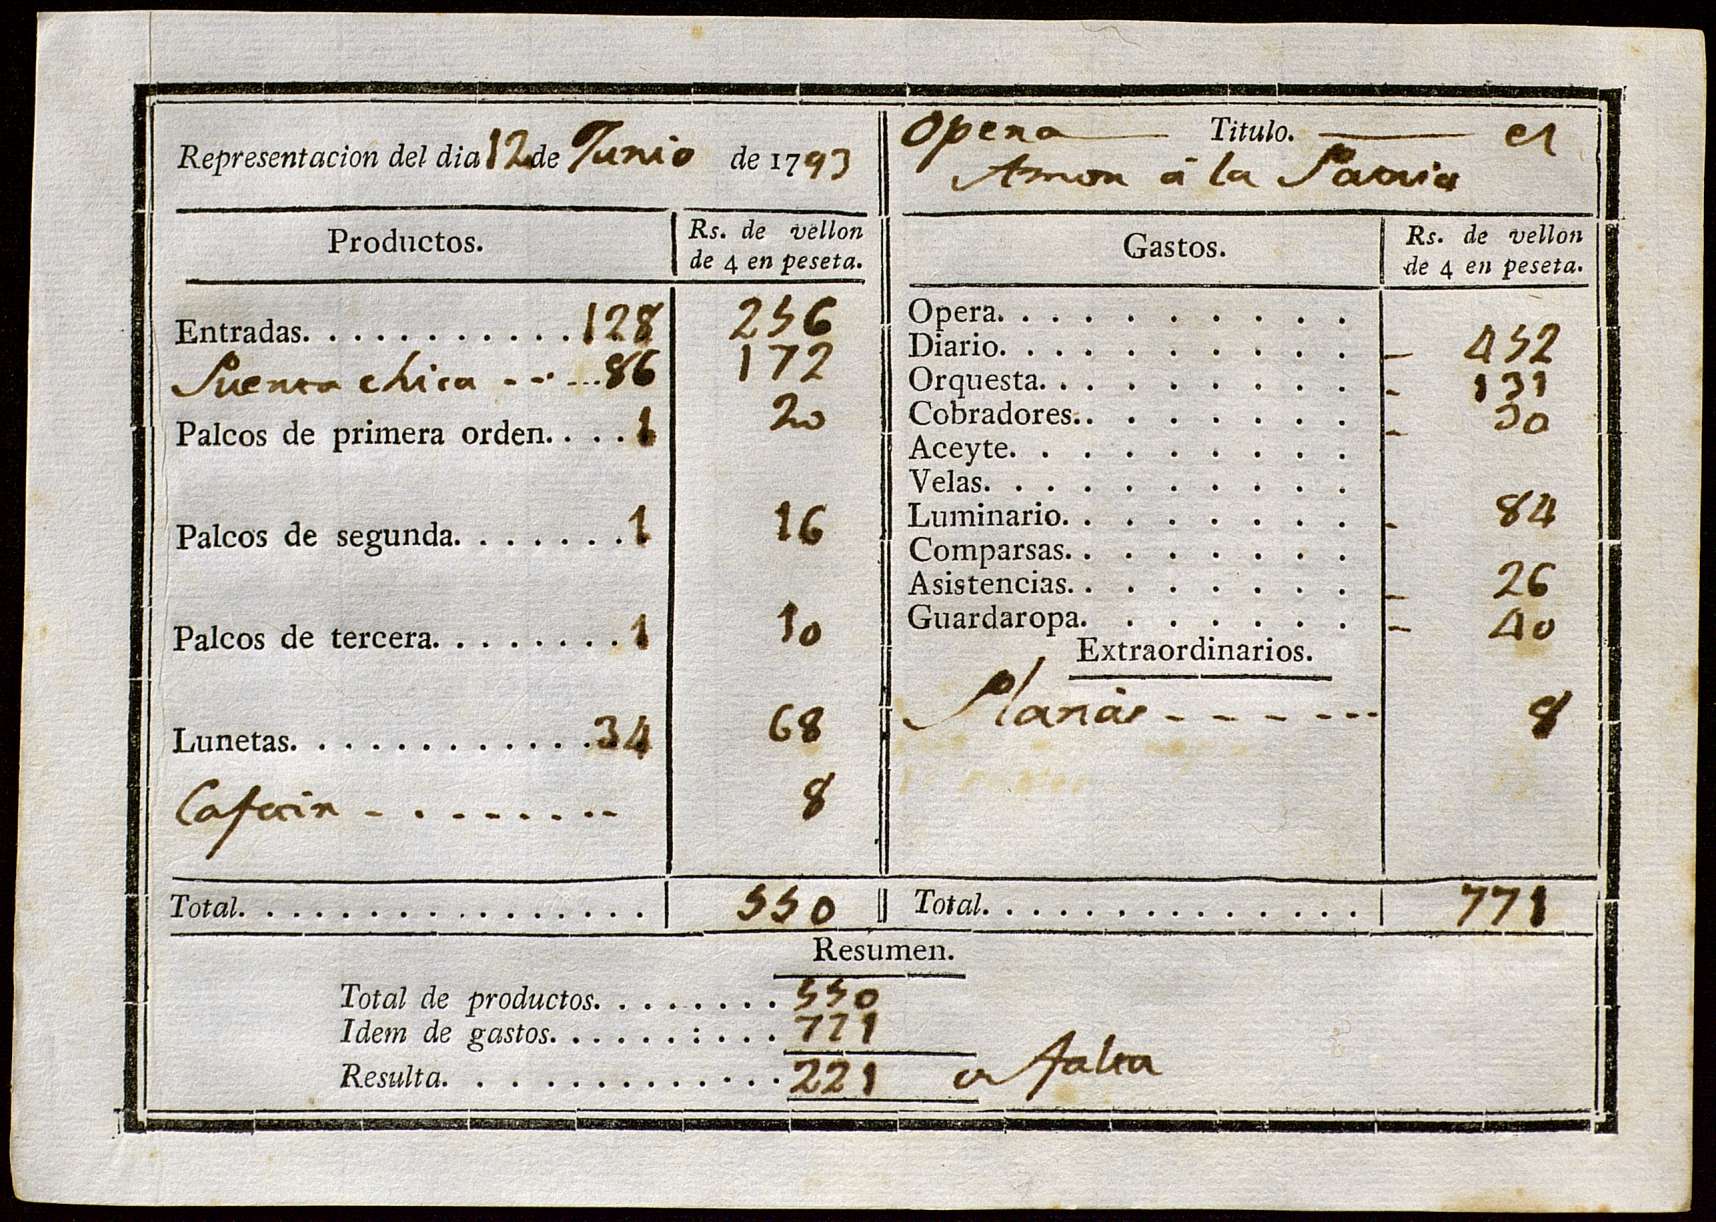 Representacion del dia 12 de Junio de 1793
Opera — Titulo. — el
Amor á la Patria
Productos.
Rs. de vellon
de 4 en peseta.
Entradas. . . . . . . . . . . . 128 256
Puerta chica - - - ... 86 172
Palcos de primera orden. . . . 1 20
Palcos de segunda. . . . . . . . 1 16
Palcos de tercera. . . . . . . . 1 10
Lunetas. . . . . . . . . . . . . 34 68
- . - - - - - - 8
Total. . . . . . . . . . . . . . . . . 550
Gastos.
Rs. de vellon
de 4 en peseta.
Opera. . . . . . . . . .
Diario. . . . . . . . . . - 452
Orquesta. . . . . . . . . - 131
Cobradores. . . . . . . . - 30
Aceyte. . . . . . . . .
Velas. . . . . . . . . .
Luminario. . . . . . . . - 84
Comparsas. . . . . . . .
Asistencias. . . . . . . . - 26
Guardaropa. . . . . . . - 40
Extraordinarios.
- - - - - - - 8
Total. . . . . . . . . . . . . . 771
Resumen.
Total de productos. . . . . . . . 550
Idem de gastos. . . . . . : . . . 771
Resulta. . . . . . . . . . . . . . 221 falta